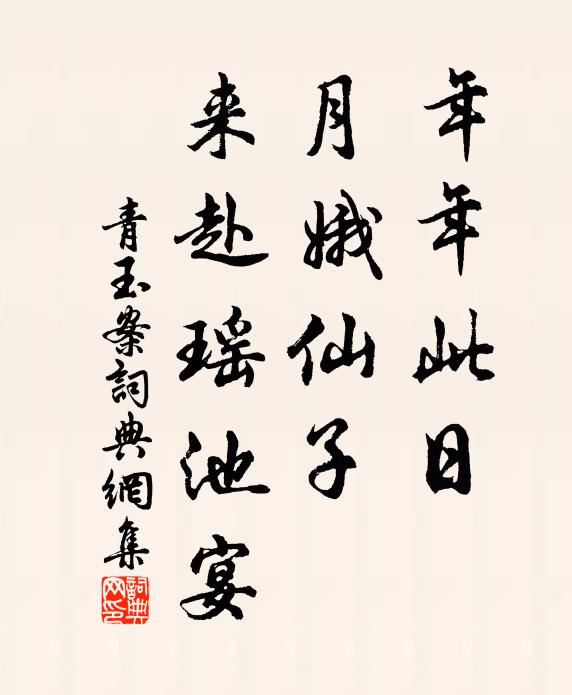 年年此日
月娥仙子
来赴瑶池宴
青玉案詞典網集
詞典网印